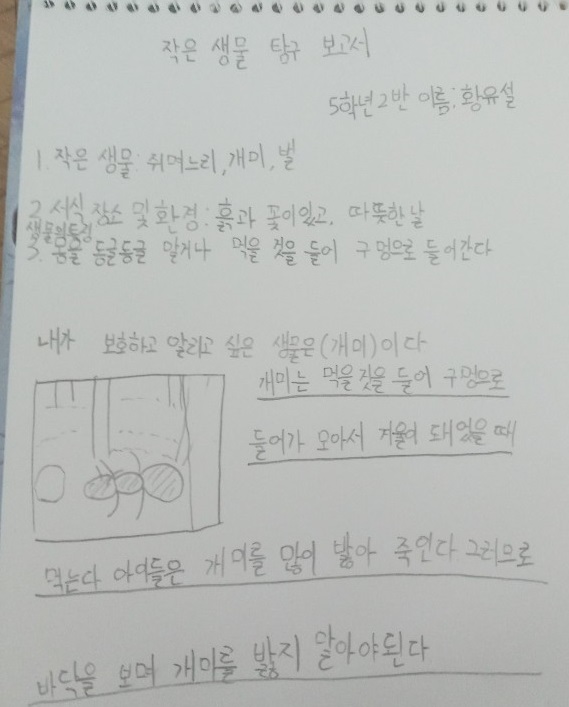 작은 생물 탐구 보고서
5학년 2반 이름: 황유설
1. 작은 생물: 쥐며느리, 개미, 벌
2. 서식 장소 및 환경: 흙과 꽃이있고, 따뜻한 날
생물의 특징
3. 몸을 동글동글 말거나 먹을 것을 들어 구멍으로 들어간다
내가 보호하고 알리고 싶은 생물은(개미)이다
개미는 먹을것을 들어 구멍으로
들어가 모아서 겨울이 돼었을때
먹는다 아이들은 개미를 많이 밟아 죽인다 그러므로
바닥을 보며 개미를 밟지 말아야된다